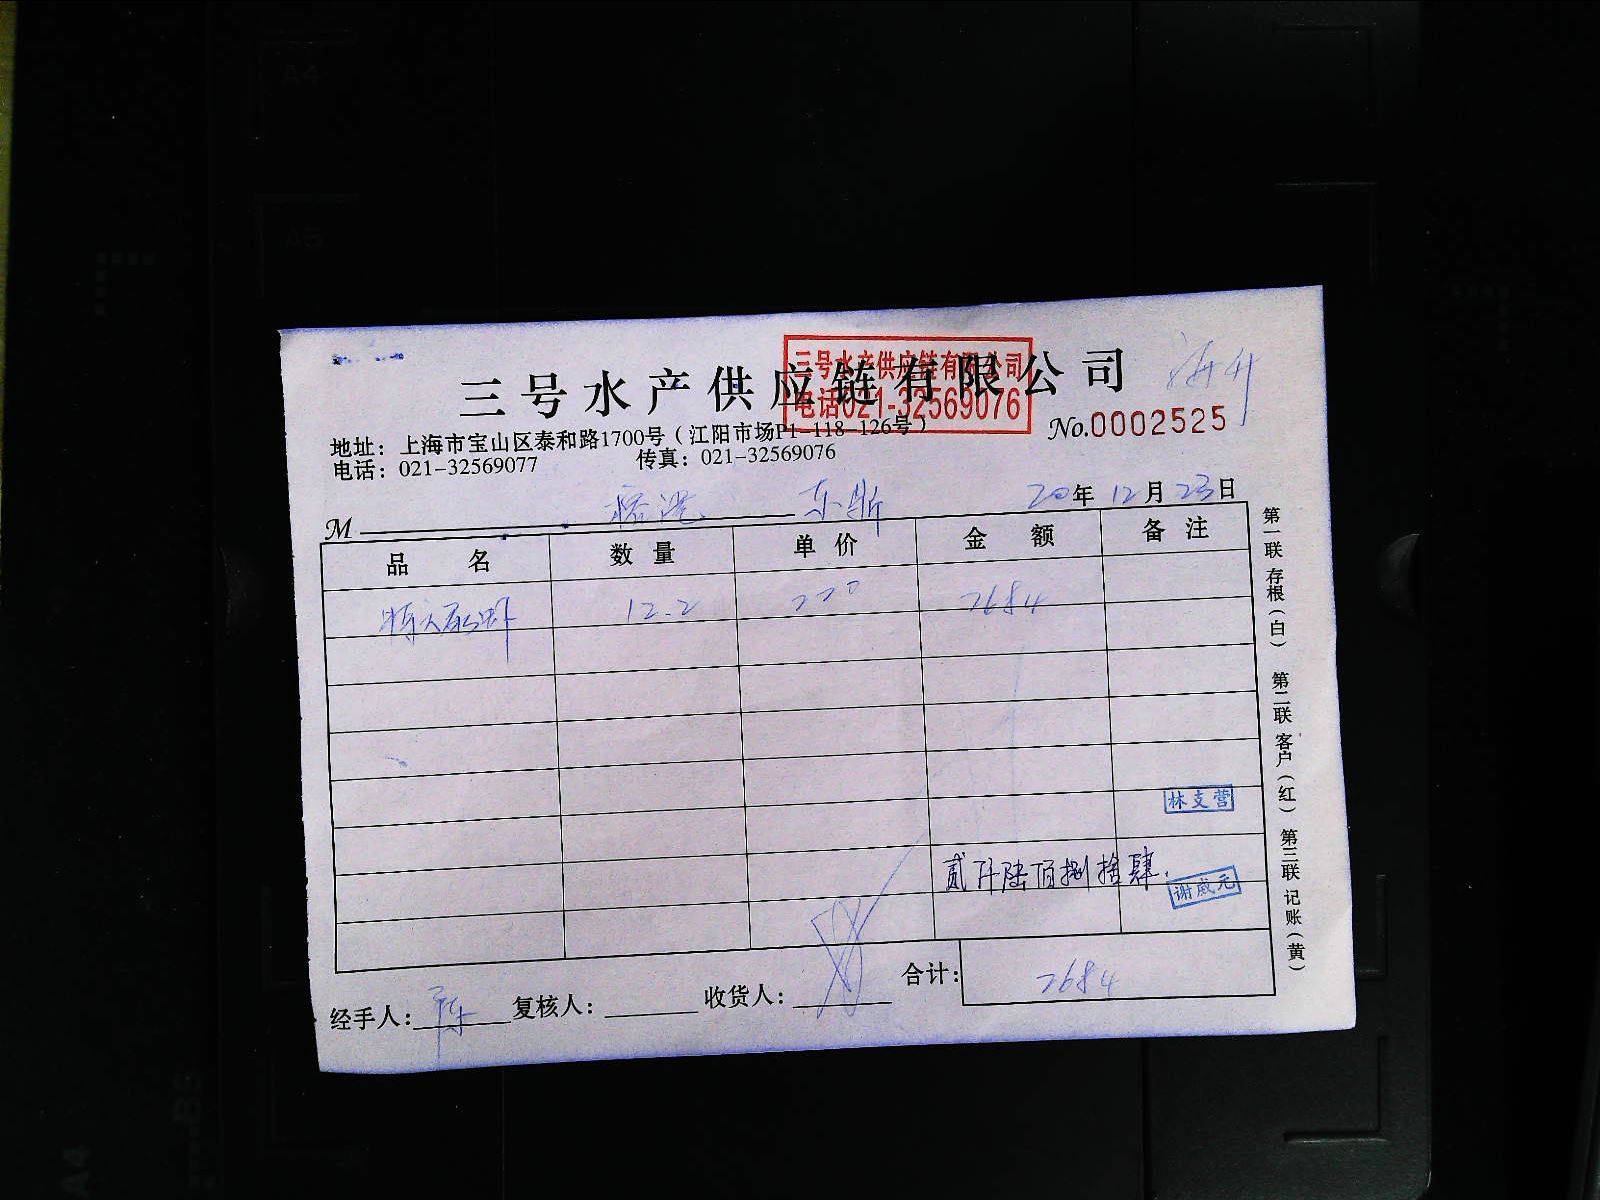 三号水产供应链有限公司
三号水产供应链有限公司
电话021-32569076
海升
No.0002525
地址：上海市宝山区泰和路1700号（江阳市场P1-118-126号）
电话：021-32569077 传真：021-32569076
M
20年12月23日
品名 数量 单价 金额 备注
12.2 220 2684
林支营
贰仟陆佰捌拾肆.
谢威元
合计：2684
经手人：陈 复核人： 收货人：
第一联 存根（白） 第二联 客户（红） 第三联 记账（黄）
A4
A5